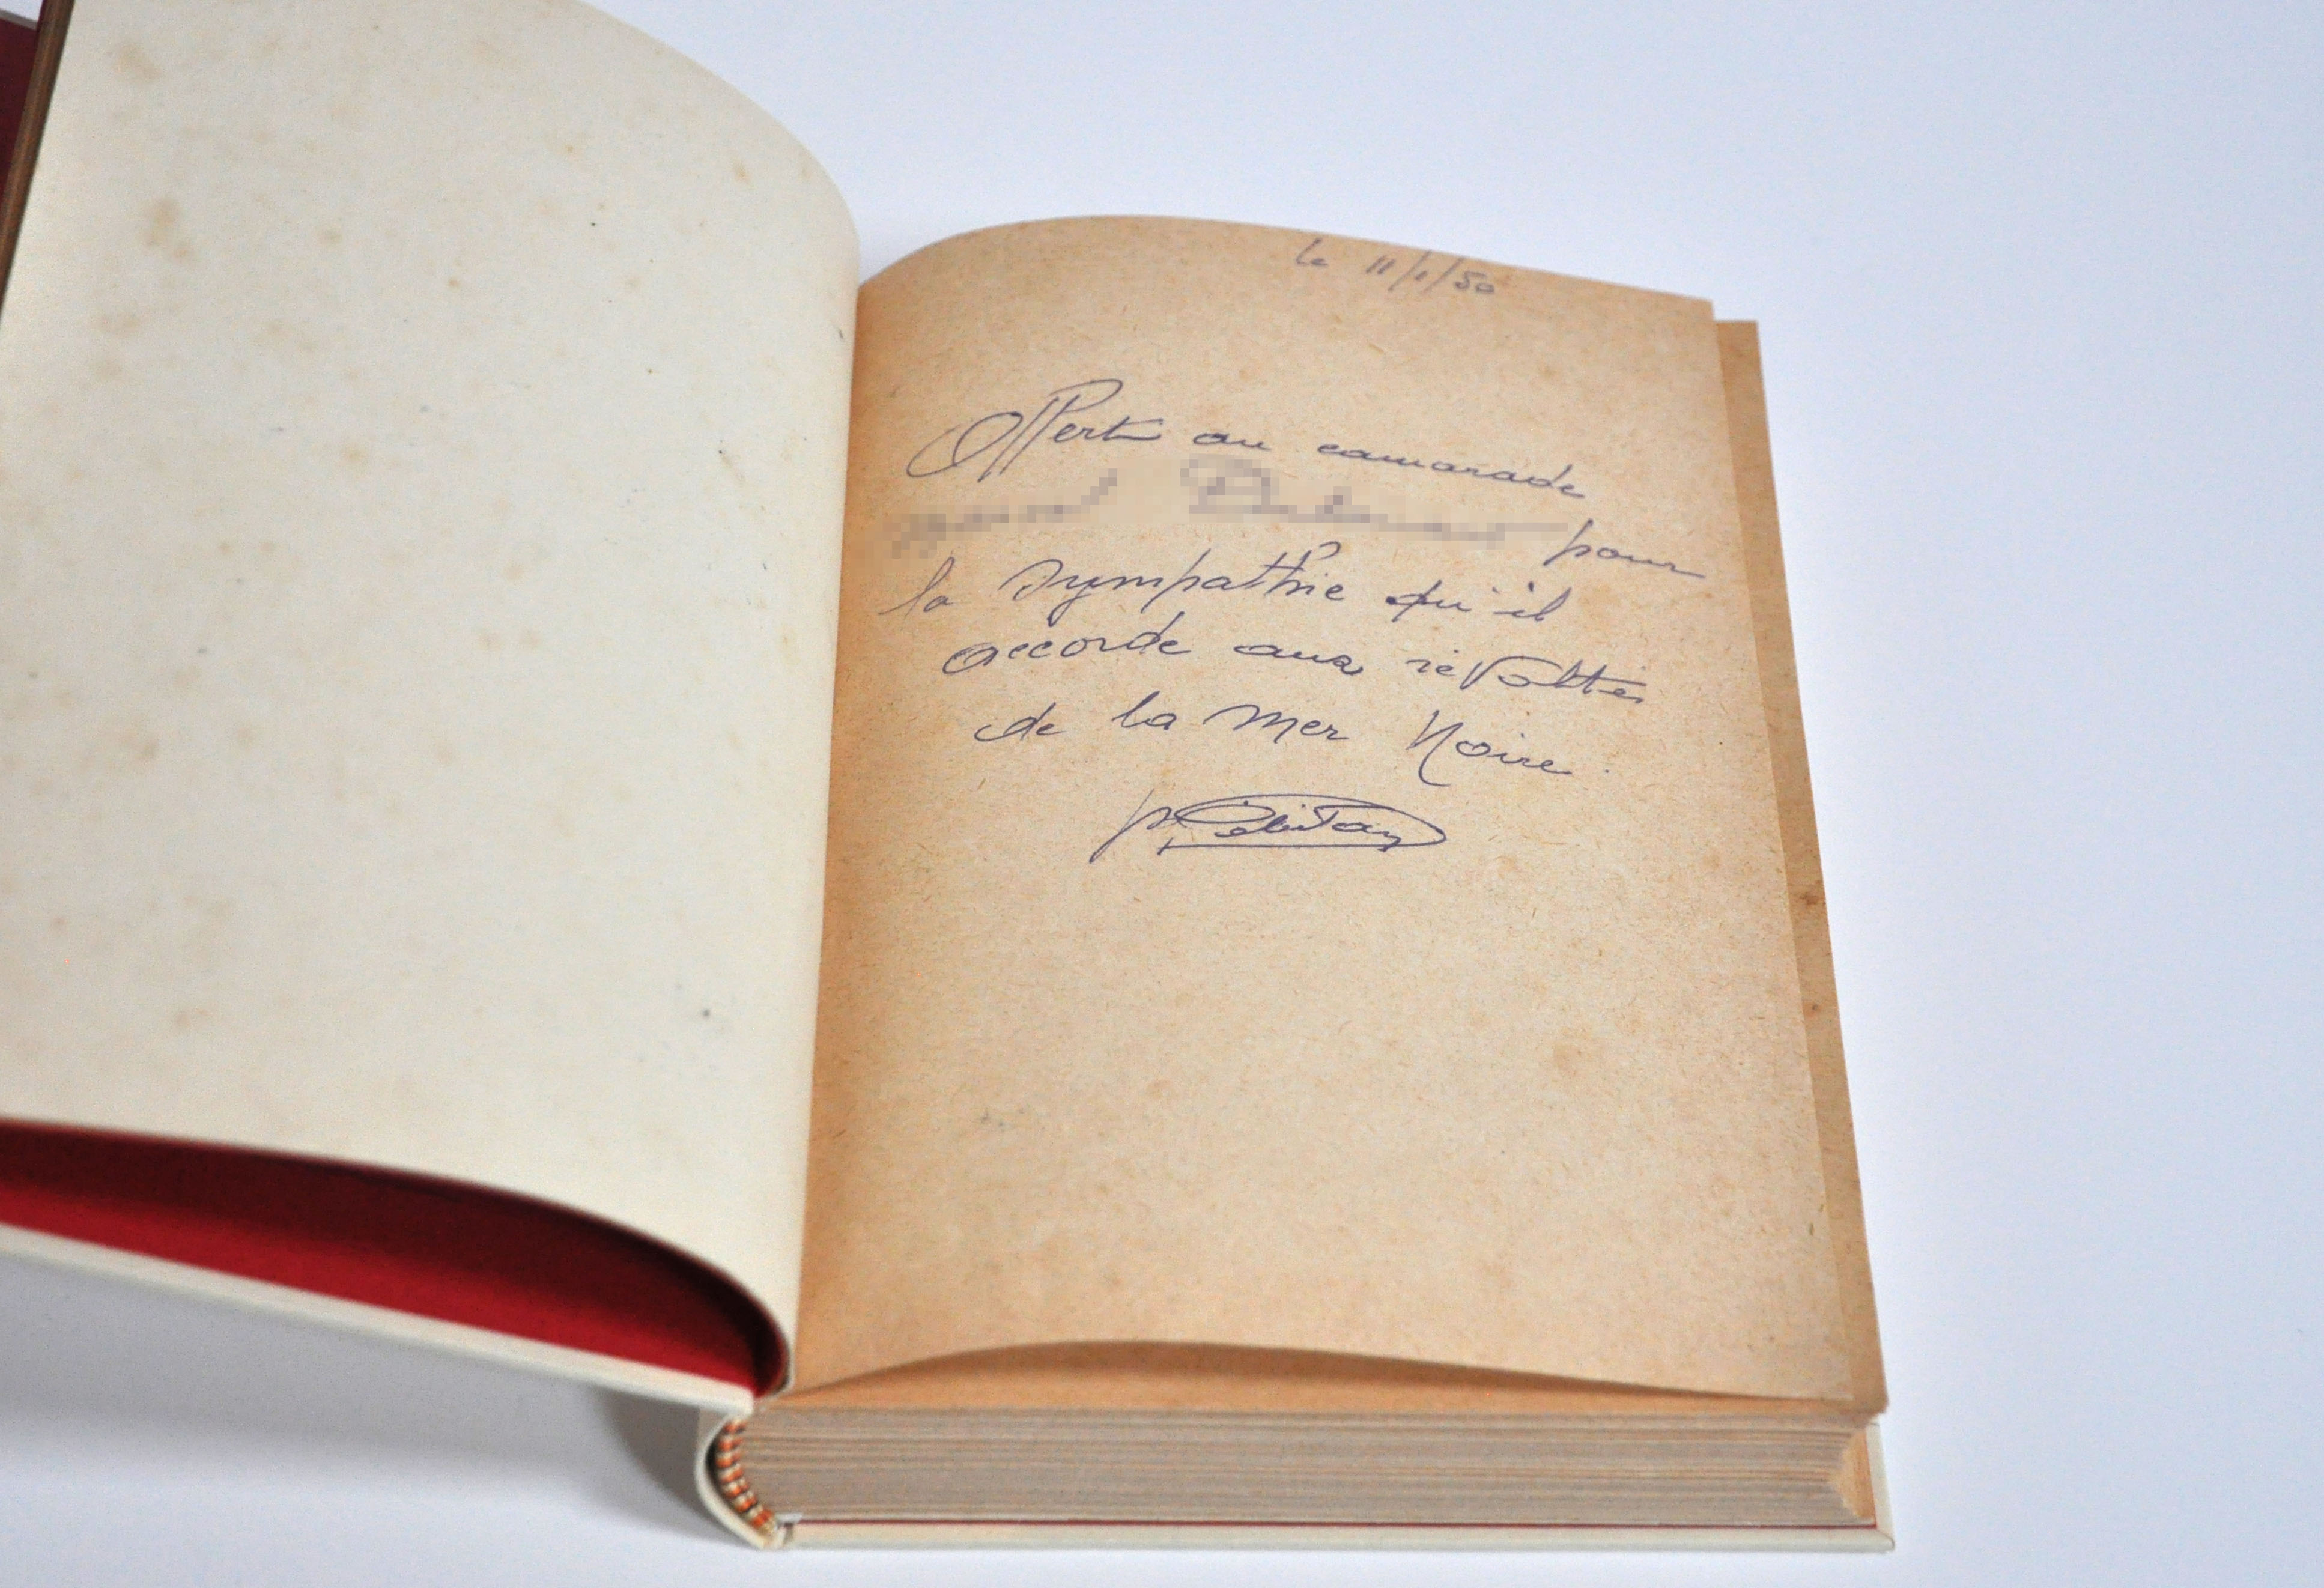 le 11/1/50
Offert au camarade
pour
la sympathie qu'il
accorde aux révoltés
de la Mer Noire.